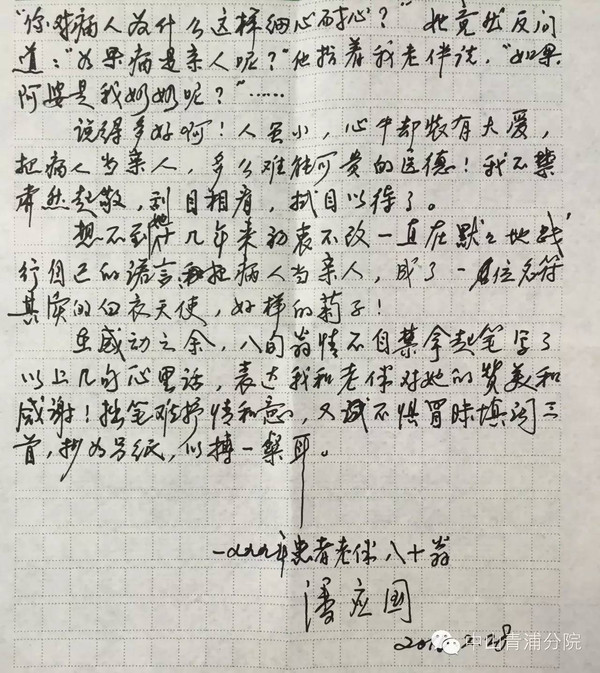 "你对病人为什么这样细心而耐心？"她竟然反问
道："如果病是亲人呢？"他指着我老伴说，"如果
阿婆是我奶奶呢？"……
说得多好啊！人虽小，心中却装有大爱，
把病人当亲人，多么难能可贵的医德！我不禁
肃然起敬，刮目相看，拭目以待了。
想不到她十几年来初衷不改一直在默々地践
行自己的诺言，把病人当亲人，成了一位名符
其实的白衣天使，好样的莉子！
在感动之余，八旬翁情不自禁拿起笔写了
以上几句心里话，表达我和老伴对她的赞美和
感谢！拙笔难抒情和意，又试不惧冒昧填词三
首，抄为另纸，以博一粲耳。
患者老伴八十翁
潘应国
中山青浦分院